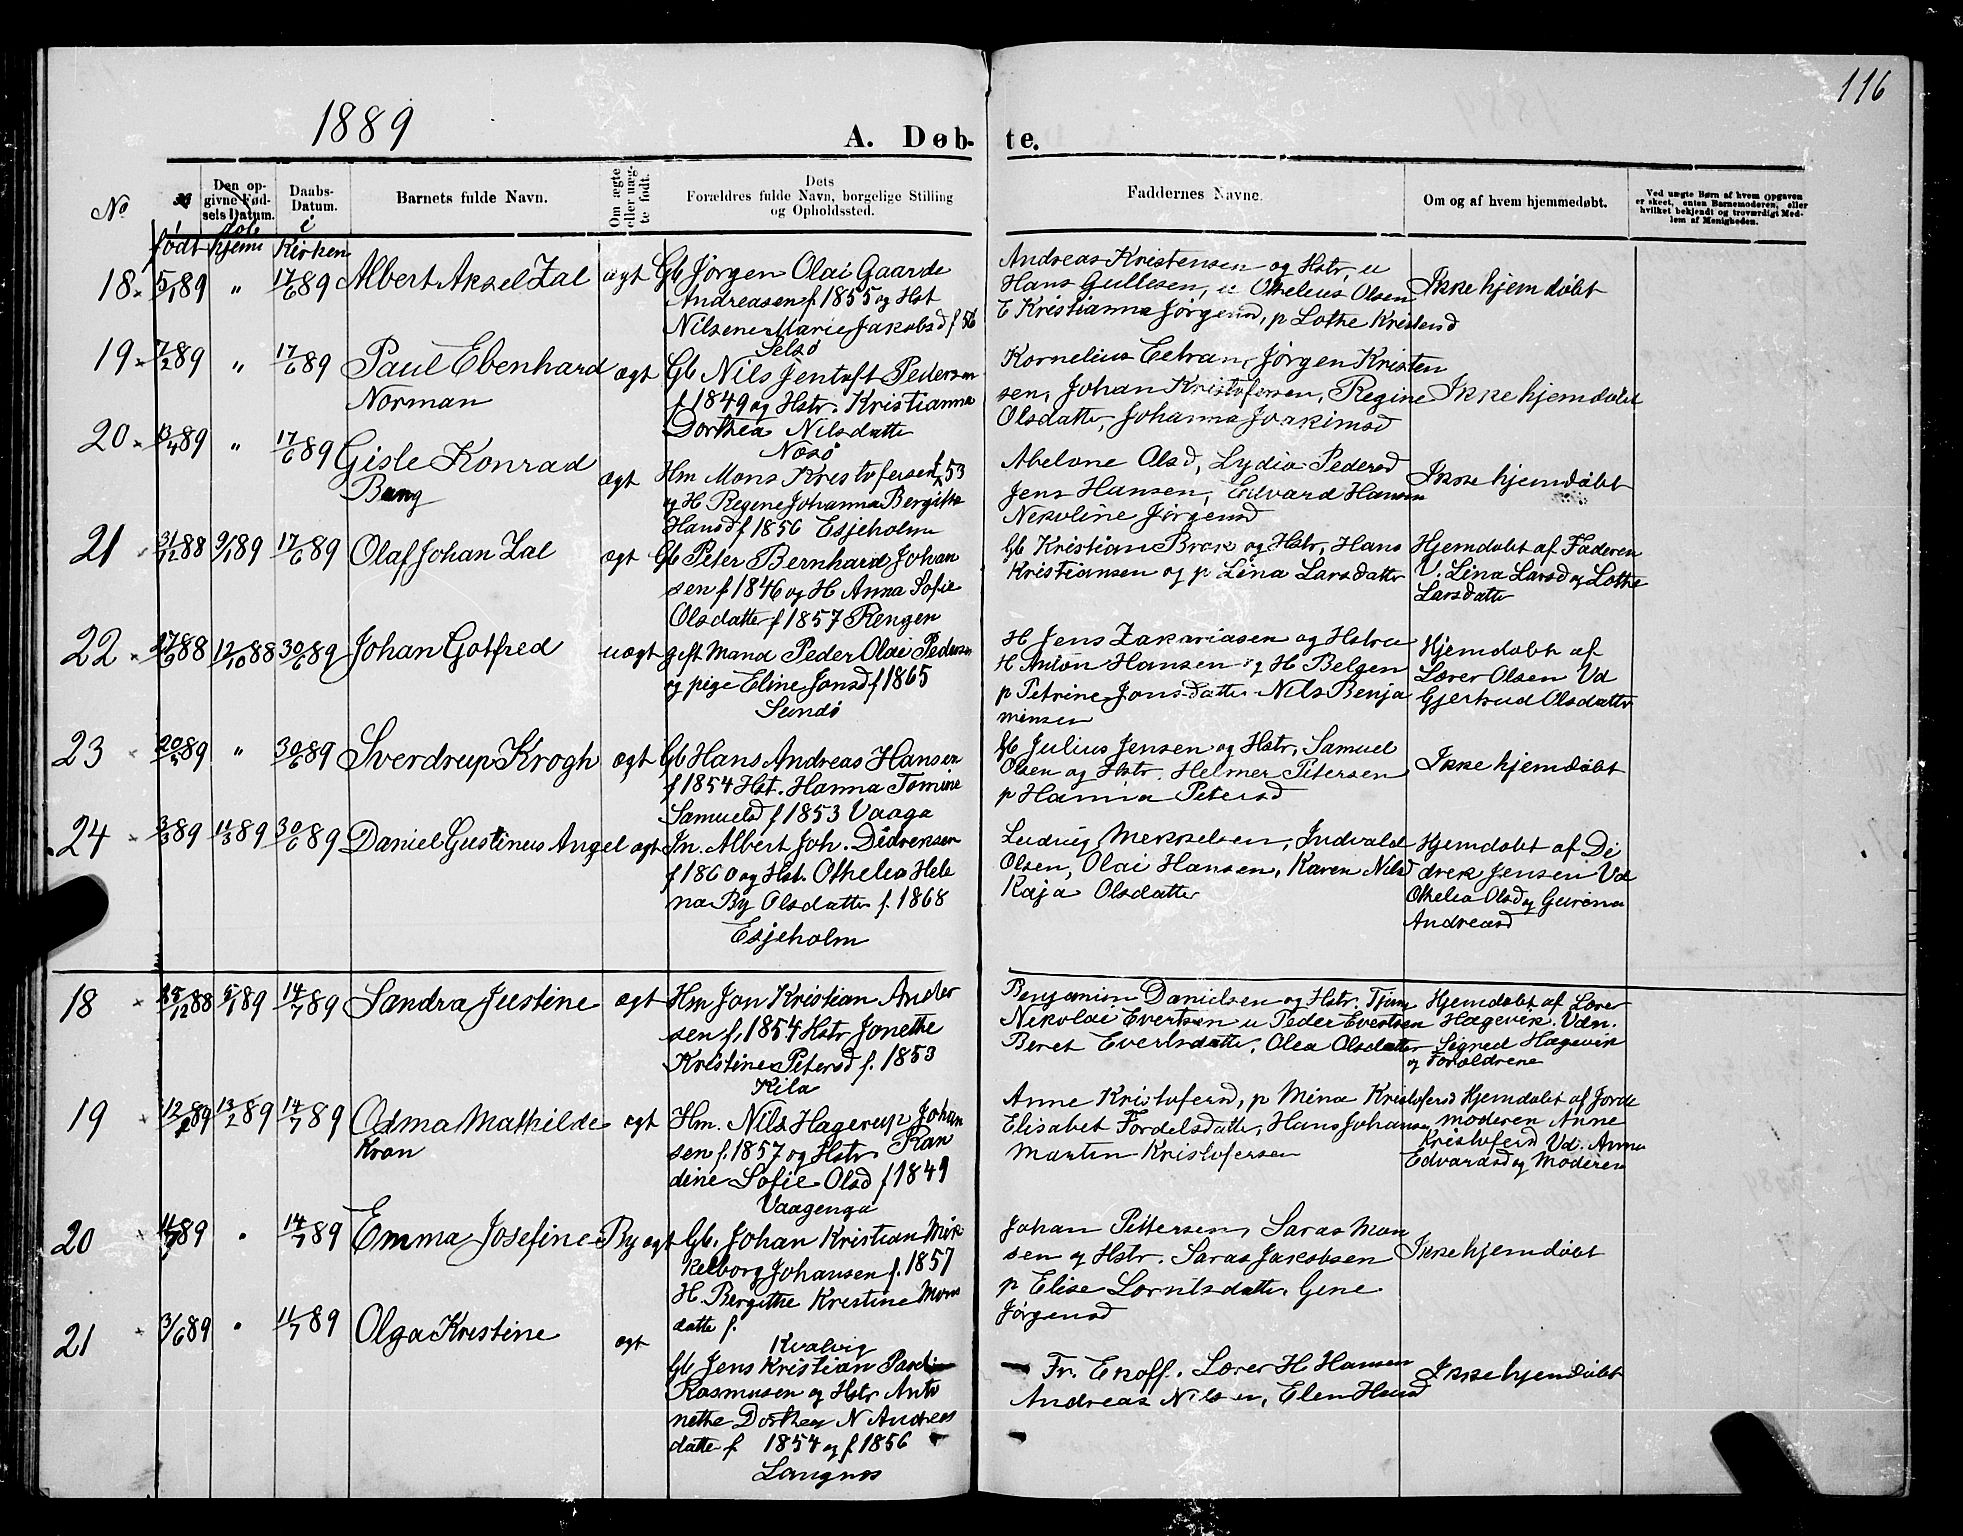 116
1889
A. Døb-te.
No
Den opgivne Fødsels Datum.
Daabs-Datum.
Barnets fulde Navn.
Om ægte eller uægte født.
Dets Forældres fulde Navn, borgelige Stilling og Opholdssted.
Faddernes Navne.
Om og af hvem hjemmedøbt.
Ved uægte Børn af hvem Opgaven er skeet, enten Barnemoderen, eller hvilket bekjendt og troværdigt Medlem af Menigheden.
født
hjeme
i Kirken
18 5/1 89 " 17/6 89 Albert Aksel Zal ægt Gb Jørgen Olai Gaarde
Andreasen f. 1855 og Hst
Nilsene Marie Jakobsd f 56
Selsø
Andreas Kristensen og Hstr, u
Hans Gullesen, u Othelius Olsen
E Kristianna Jørgensd, p Lothe Kristensd
Ikke hjemdøbt
19 7/2 89 " 17/6 89 Paul Ebenhard
Norman
ægt Gb Nils Jentoft Pedersen
f 1849 og Hstr. Kristianna
Dorthea Nilsdatte
Nosø
Kornelius Jørgen Kristen
sen, Johan Kristofersen, Regine
Olsdatte, Johanna Joakimsd
Ikke hjemdøbt
20 13/4 89 " 17/6 89 Gisle Konrad
Bang
ægt Hm Mons Kristofersen f. 53
og H Regine Johanna Bergitte
Hansd f 1856 Esjeholm
Abelone Olsd, Lydia Pedersd
Jens Hansen, Edvard Hansen
Nekoline Jørgensd
Ikke hjemdøbt
21 31/12 88 9/1 89 17/6 89 Olaf Johan Zal ægt Gb Peter Bernhard Johan
sen f 1846 og H Anna Sofie
Olsdatte f 1857 Rengen
Gb Kristian Brek og Hstr, Hans
Kristiansen og p Lina Larsdatter
Hjemdøbt af Faderen
V. Lina Larsd og Lothe
Larsdatte
22 27/9 88 12/10 88 30/6 89 Johan Gotfred uægt gift Mand Peder Olai Pedersen
og pige Eline Jonsd f 1865
Sundø
H Jens Zakariasen og Hstru
H Anton Hansen og H Belgen
p Petrine Jonsdatte Nils Benja
minsen
Hjemdøbt af
Lærer Olsen Vd
Gjertrud Olsdatter
23 20/5 89 " 30/6 89 Sverdrup Krogh ægt Gb Hans Andreas Hansen
f 1854 Hst. Hanna Tomine
Samuelsd f 1853 Vaaga
Gb Julius Jensen og Hstr, Samuel
Olsen og Hstr. Helmer Petersen
p Hanna Petersd
Ikke hjemdøbt
24 3/3 89 11/3 89 30/6 89 Daniel Gustinus Angel ægt In. Albert Joh. Didreksen
f 1860 og Hst. Othelea Hele
na By Olsdatte f. 1868
Esjeholm
Ludvig Mekkelsen, Indvald
Olsen, Olai Hansen, Karen Nilsd
Kaja Olsdatte
Hjemdøbt af Di
drek Jensen Vd
Othelea Olsd og Gurina
Andreasd
18 25/12 88 5/1 89 14/7 89 Sandra Justine ægt Hm Jon Kristian Ander
sen f. 1854 Hstr Jonethe
Kristine Petersd f. 1853
Kila
Benjamin Danielsen og Hstr. Tjene
Nikolai Evertsen u Peder Evertsen
Beret Evertsdatte, Olea Olsdatter
Hjemdøbt af Lærer
Hægevik. Vdn.
Signed Hægevik
og Forældrene
19 12/2 89 13/2 89 14/7 89 Odma Mathilde
Kron
ægt Hm. Nils Hagerup Johan
sen f. 1857 og Hstr. Ran
dine Sofie Olsd f 1849
Vaagenga
Anne Kristofersd, p Mina Kristofersd
Elisabet Fordelsdatte, Hans Johansen
Martin Kristofersen
Hjemdøbt af Jorde
moderen Anne
Kristofersd Vd. Anna
Edvardsd og Moderen
20 89 " 14/7 89 Emma Josefine By ægt Gb. Johan Kristian Mik
kelborg Johansen f. 1857
H. Bergithe Kristine Mons
datte f.
Kvalvig
Johan Pettersen, Saras Mon
sen og Hstr. Saras Jakobsen
p Elise Lorntsdatte, Gene
Jørgensd
Ikke hjemdøbt
21 3/6 89 " 14/7 89 Olga Kristine ægt Gb Jens Kristian Pardi
Rasmusen og Hstr Anto
nethe Dorthea N Andreas
datte f 1854 og f. 1856
Langnes
Fr. Ekoff. Lærer H Hansen
Andreas Nilsen, Elen Hansd
Ikke hjemdøbt